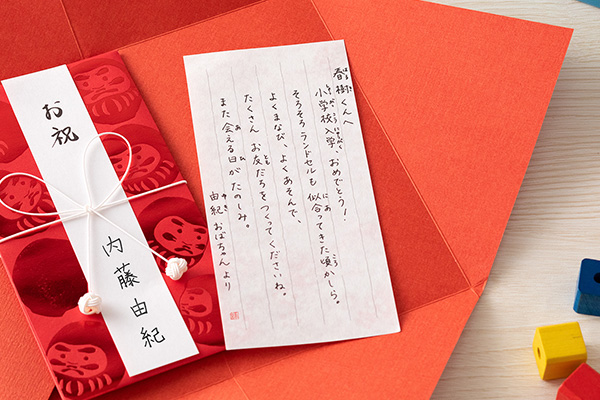 お祝
内藤由紀
春樹くんへ
小学校入学、おめでとう！
そろそろランドセルも似合ってきた頃かしら。
よくまなび、よくあそんで、
たくさんお友だちをつくってくださいね。
また会える日がたのしみ。
由紀おばちゃんより